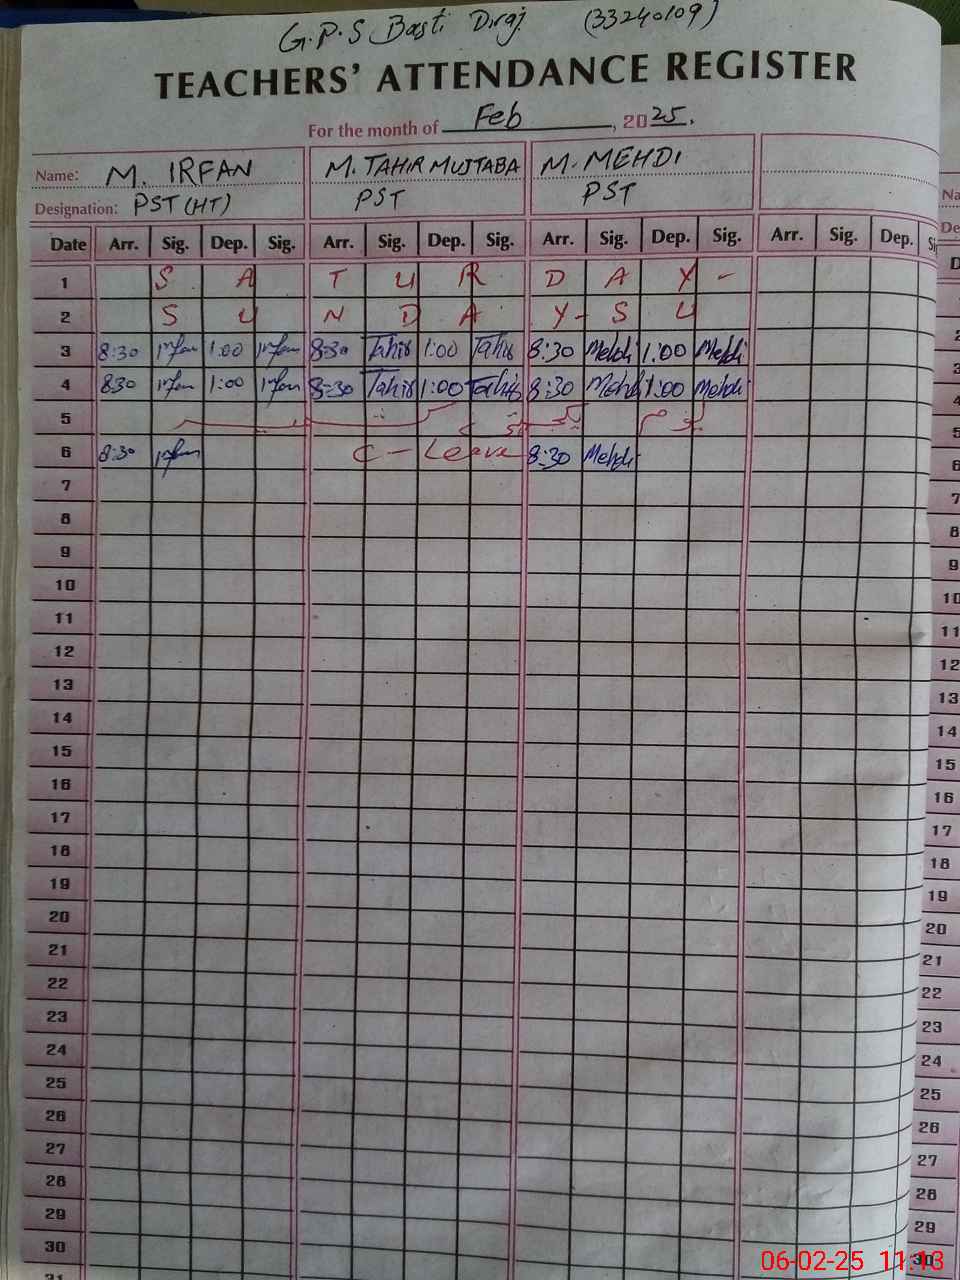 G.P.S Basti Diraj (33240109)
TEACHERS' ATTENDANCE REGISTER
For the month of Feb, 2025.
Name: M. IRFAN M. TAHIR MUJTABA M. MEHDI
Designation: PST (HT) PST PST
Date Arr. Sig. Dep. Sig. Arr. Sig. Dep. Sig. Arr. Sig. Dep. Sig. Arr. Sig. Dep.
1 S A T U R D A Y -
2 S U N D A Y - S U
3 8:30 Irfan 1:00 Irfan 8:30 Tahir 1:00 Tahir 8:30 Mehdi 1:00 Mehdi 3
4 830 Irfan 1:00 Irfan 8:30 Tahir 1:00 Tahir 8:30 Mehdi 1:00 Mehdi 4
5 یوم یکجہتی کشمیر 5
6 8:30 Irfan C - Leave 8:30 Mehdi 6
7 7
8 8
9 9
10 10
11 11
12 12
13 13
14 14
15 15
16 16
17 17
18 18
19 19
20 20
21 21
22 22
23 23
24 24
25 25
26 26
27 27
28 28
29 29
30 30
31
06-02-25 11:13